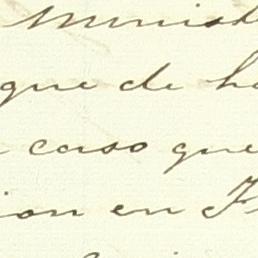 Minist
que de h
caso que
ion en F